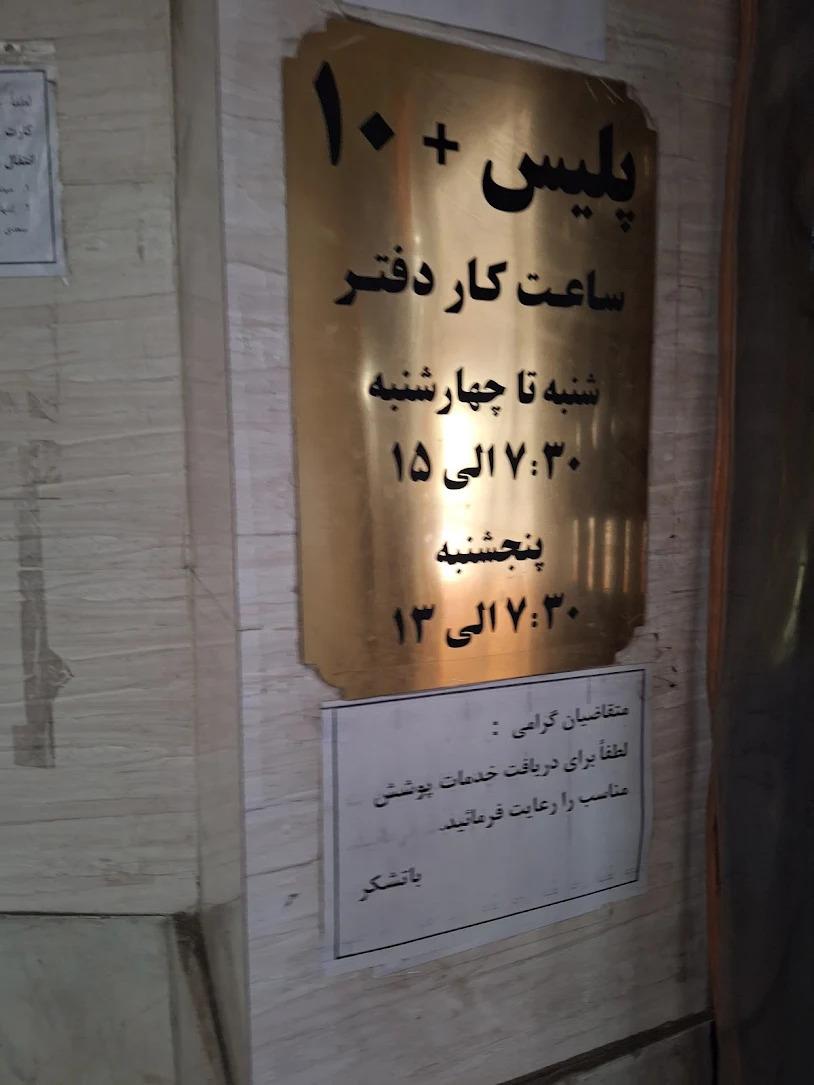 پلیس + ۱۰
ساعت کار دفتر
شنبه تا چهارشنبه
۷:۳۰ الی ۱۵
پنجشنبه
۷:۳۰ الی ۱۳
متقاضیان گرامی :
لطفاً برای دریافت خدمات پوشش
مناسب را رعایت فرمائید.
باتشکر
لطفا
کارت
انتقال